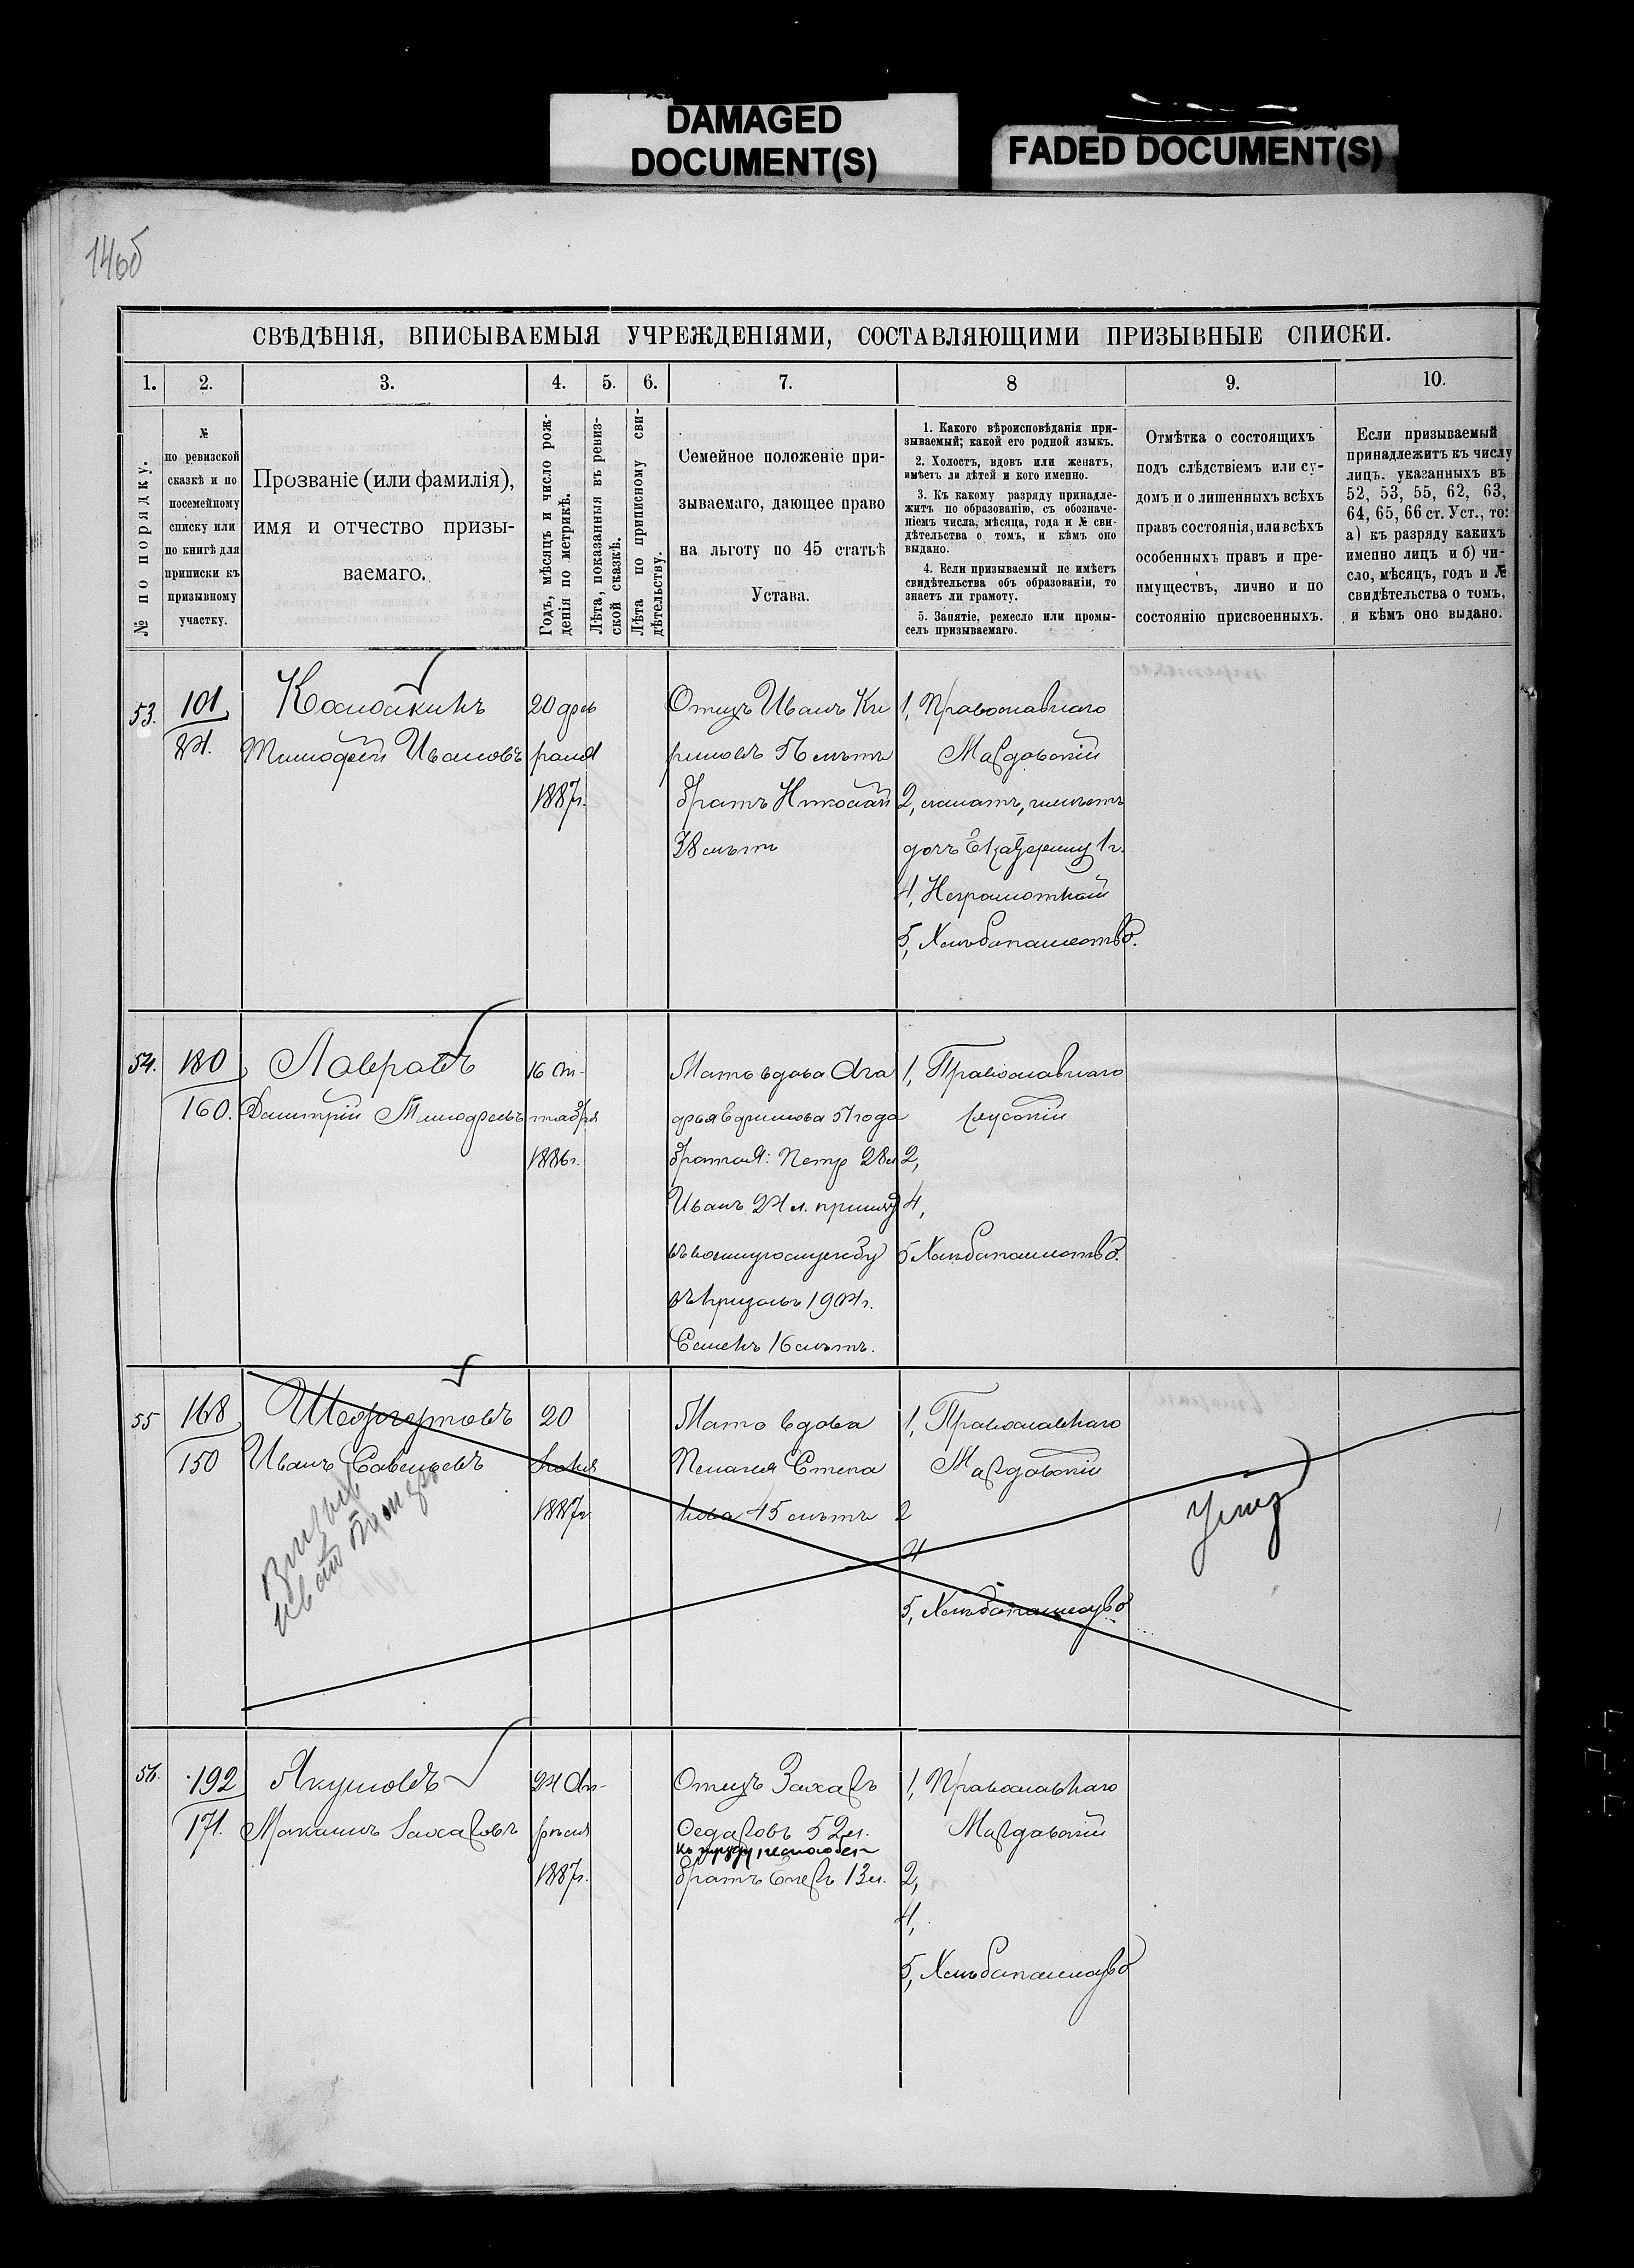 DAMAGED
DOCUMENT(S)
FADED DOCUMENT(S)
146об
СВѢДѢНІЯ, ВПИСЫВАЕМЫЯ УЧРЕЖДЕНІЯМИ, СОСТАВЛЯЮЩИМИ ПРИЗЫВНЫЕ СПИСКИ.
1. 2. 3. 4. 5. 6. 7. 8 9. 10.
№ по порядку.
№
по ревизской
сказкѣ и по
посемейному
списку или
по книгѣ для
приписки къ
призывному
участку.
Прозваніе (или фамилія),
имя и отчество призы-
ваемаго.
Годъ, мѣсяцъ и число рож-
денія по метрикѣ.
Лѣта, показанныя въ ревиз-
ской сказкѣ.
Лѣта по приписному сви-
дѣтельству.
Семейное положеніе при-
зываемаго, дающее право
на льготу по 45 статьѣ
Устава.
1. Какого вѣроисповѣданія при-
зываемый; какой его родной языкъ.
2. Холостъ, вдовъ или женатъ,
имѣетъ ли дѣтей и кого именно.
3. Къ какому разряду принадле-
житъ по образованію, съ обозначе-
ніемъ числа, мѣсяца, года и № сви-
дѣтельства о томъ, и кѣмъ оно
выдано.
4. Если призываемый не имѣетъ
свидѣтельства объ образованіи, то
знаетъ ли грамоту.
5. Занятіе, ремесло или промы-
селъ призываемаго.
Отмѣтка о состоящихъ
подъ слѣдствіемъ или су-
домъ и о лишенныхъ всѣхъ
правъ состоянія, или всѣхъ
особенныхъ правъ и пре-
имуществъ, лично и по
состоянію присвоенныхъ.
Если призываемый
принадлежитъ къ числу
лицъ, указанныхъ въ
52, 53, 55, 62, 63,
64, 65, 66 ст. Уст., то:
а) къ разряду какихъ
именно лицъ и б) чи-
сло, мѣсяцъ, годъ и №
свидѣтельства о томъ,
и кѣмъ оно выдано.
53.
101
84.
Тимофей Ивановъ
20 фев
раля
1887г.
Отецъ Иванъ Ки
риловъ 56 лѣтъ
братъ Николай
38 лѣтъ
1, Православнаго
Мордовскій
2, женатъ, имѣетъ
дочь Екатерину 1г.
4, Неграмотный
5, Хлѣбопашество.
54.
180
160.
Лавровъ
Дмитрій Тимофеевъ
16 Ок-
тября
1886г.
Мать вдова Ага
фья Ефимова 51 года
братья: Петръ 28л
Иванъ 24 л. принятъ
въ военную службу
въ призывъ 1904г.
Семенъ 16 лѣтъ.
1, Православнаго
Русскій
2,
4,
5 Хлѣбопашество.
55
168
150
Иванъ Савельевъ
20
1887г
Мать вдова
Пелагея Степа
нова 45 лѣтъ
1, Православнаго
Мордовскій
2
4
5, Хлѣбопашество
56.
192
171.
Якушовъ
Максимъ Захаровъ
24 Ап-
рѣля
1887г.
Отецъ Захаръ
Федоровъ 52л.
къ труду неспособен
1, Православнаго
Мордовскій
2,
4,
5, Хлѣбопашество